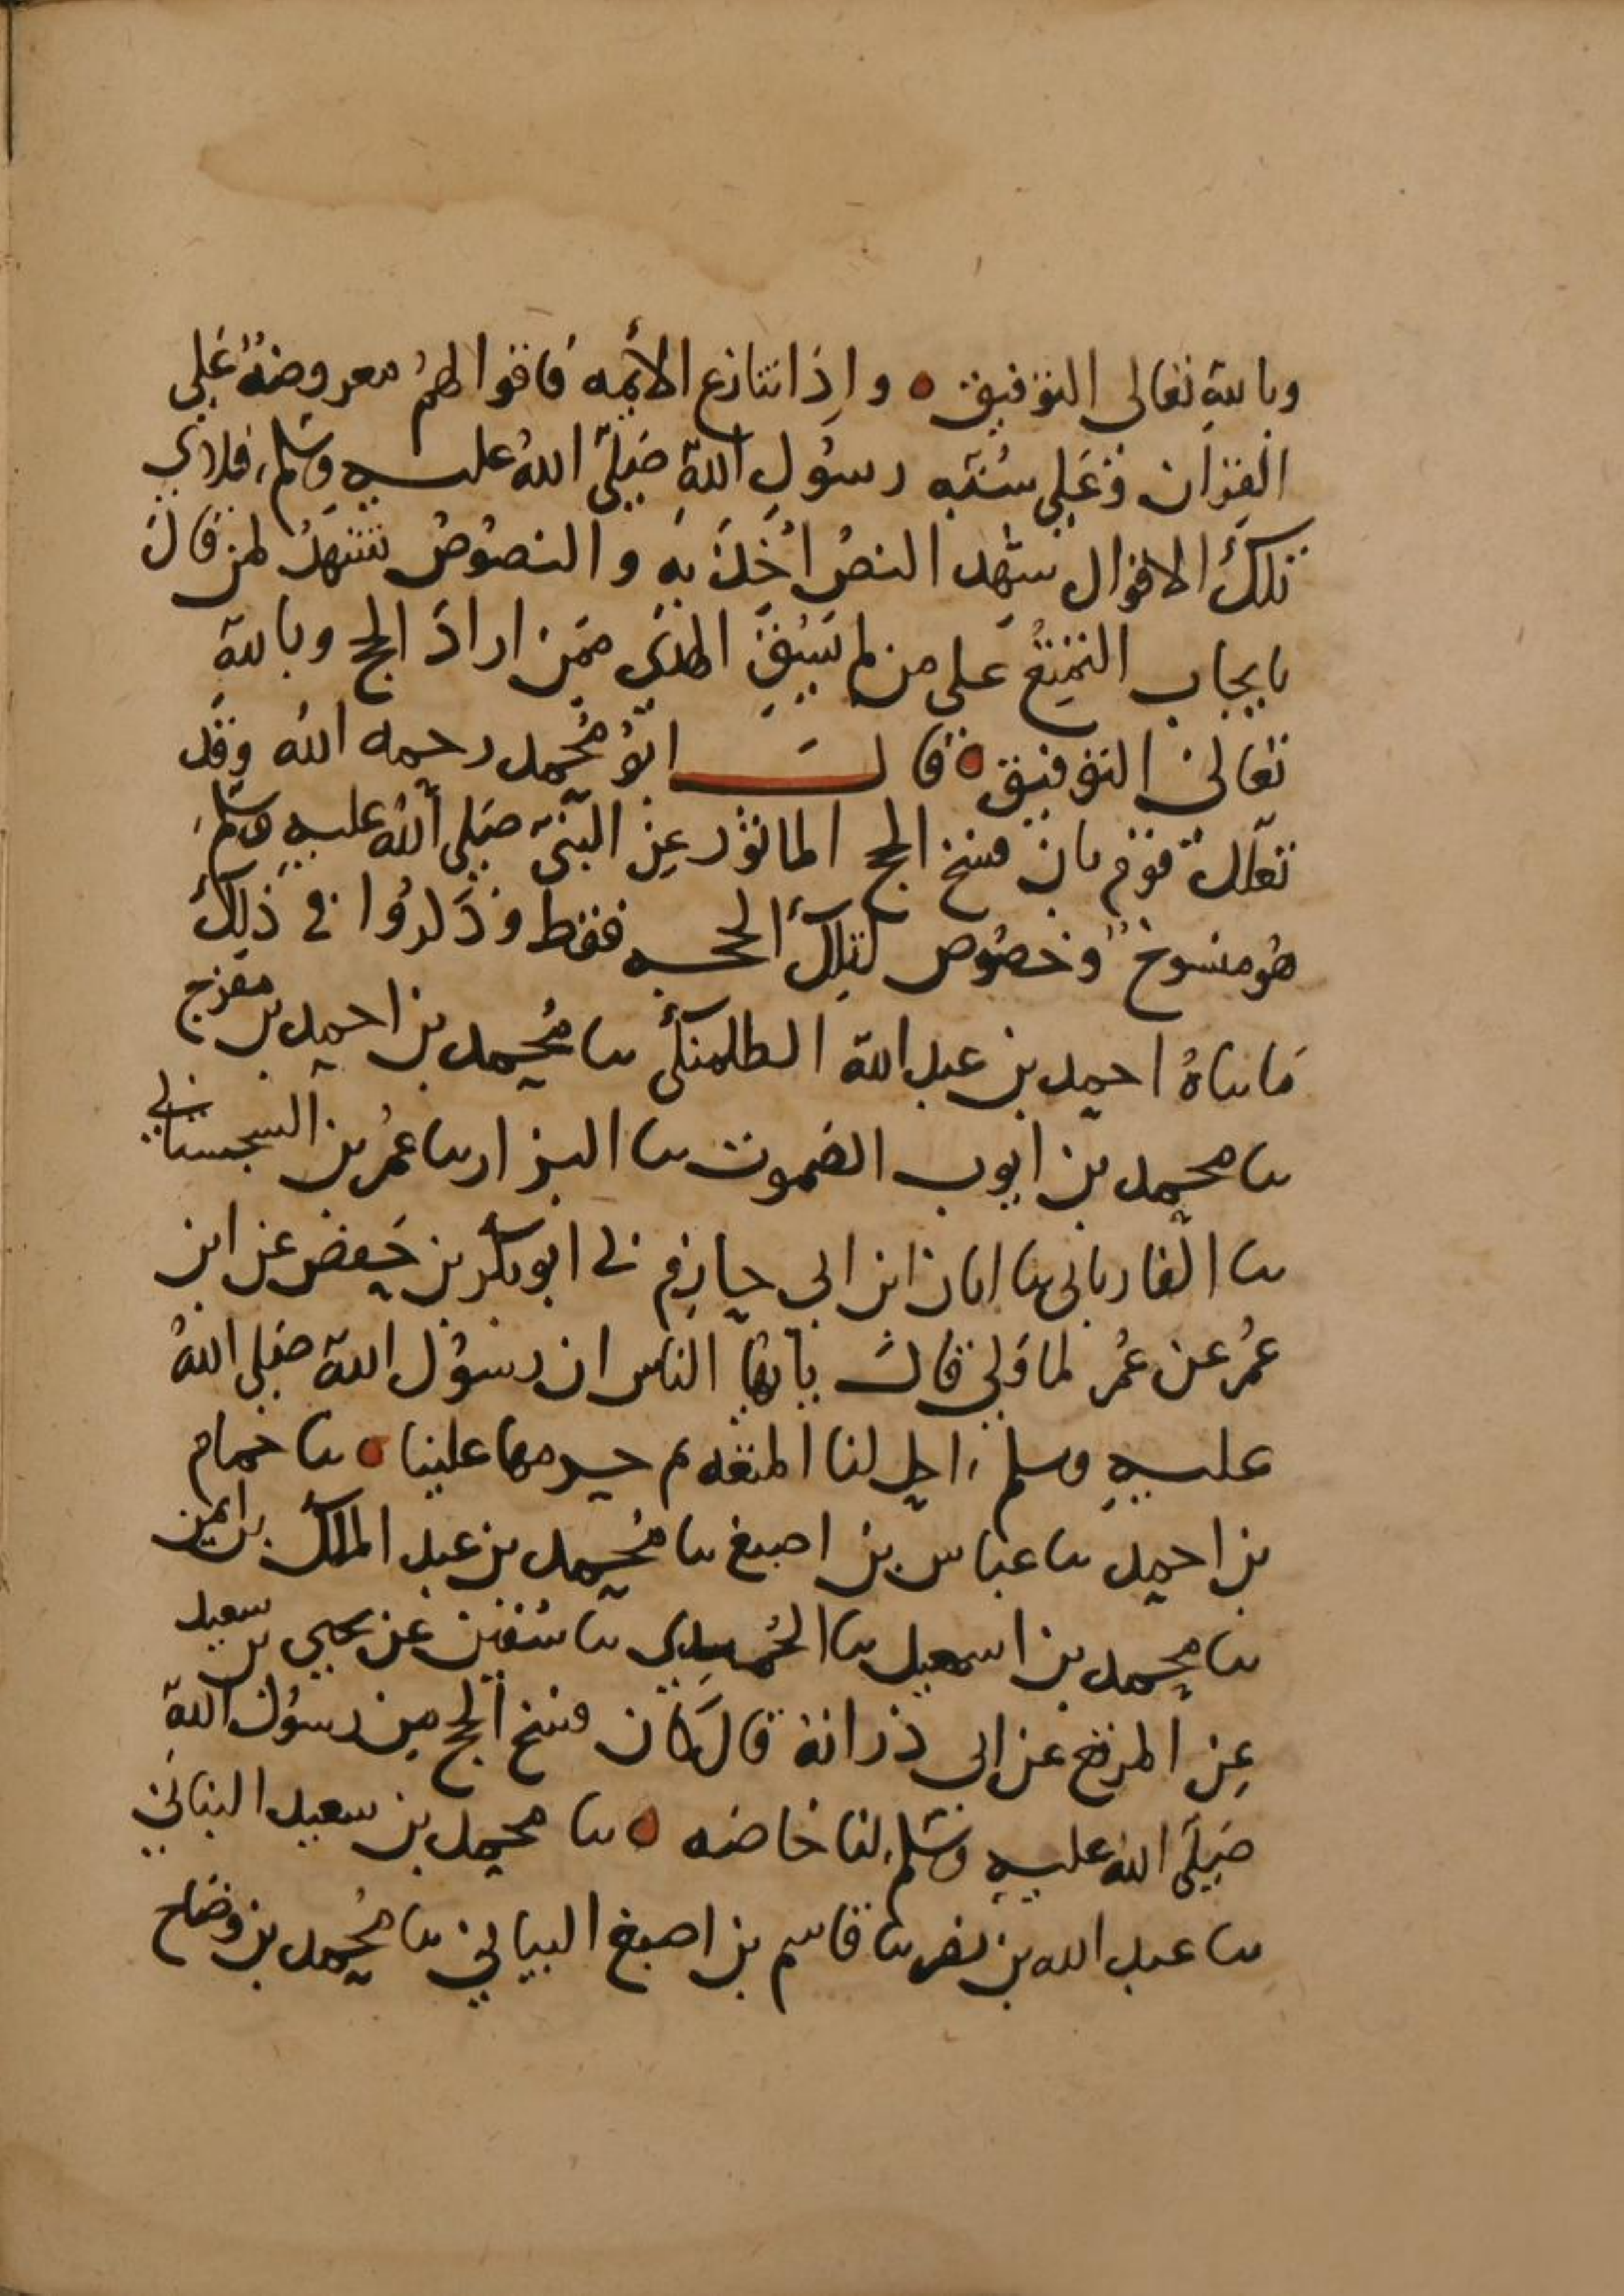 وبالله تعالى التوفيق ۝ واذا تنازع الأيمه فاقوالهم معروضة على
القران وعلى سنته رسول الله صلى الله عليه وسلم فلاي
تلك الاقوال شهد النص اخذ به والنصوص تشهد لمن قال
بايجاب التمتع على من لم يسق الهدي ممن اراد الحج وبالله
تعالى التوفيق ۝ قال ابو محمد رحمه الله وقد
تعلل قوم بان فسخ الحج الماثور عن النبي صلى الله عليه وسلم
هو منسوخ وخصوص لتلك الحجه فقط وذكروا في ذلك
ما ساه احمد بن عبد الله الطلمنكي سا محمد بن احمد بن مفرج
سا محمد بن ايوب الصموت سا البزار سا عمر بن السجستاني
سا الفاريابي سا ابان ابن ابي حازم ني ابو بكر بن حفص عن ابن
عمر عن عمر لما ولي قال يايها الناس ان رسول الله صلى الله
عليه وسلم احل لنا المتعه ثم حرمها علينا ۝ سا حمام
بن احمد سا عباس بن اصبغ سا محمد بن عبد الملك بن ايمن
سا محمد بن اسمعيل سا الحميدي سا سفين عن يحيى بن سعيد
عن المرقع عن ابي ذر انه قال كان فسخ الحج من رسول الله
صلى الله عليه وسلم لنا خاصه ۝ سا محمد بن سعيد النباتي
سا عبد الله بن نصر سا قاسم بن اصبغ البياني سا محمد بن وضاح